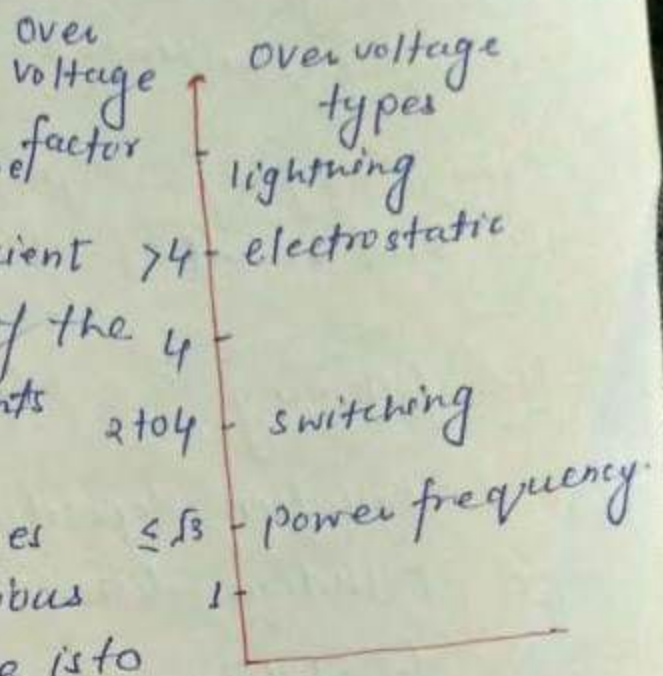 Over
voltage
factor
Over voltage
types
lightning
>4 electrostatic
the 4
2 to 4 switching
es ≤√3 power frequency.
bus 1
is to